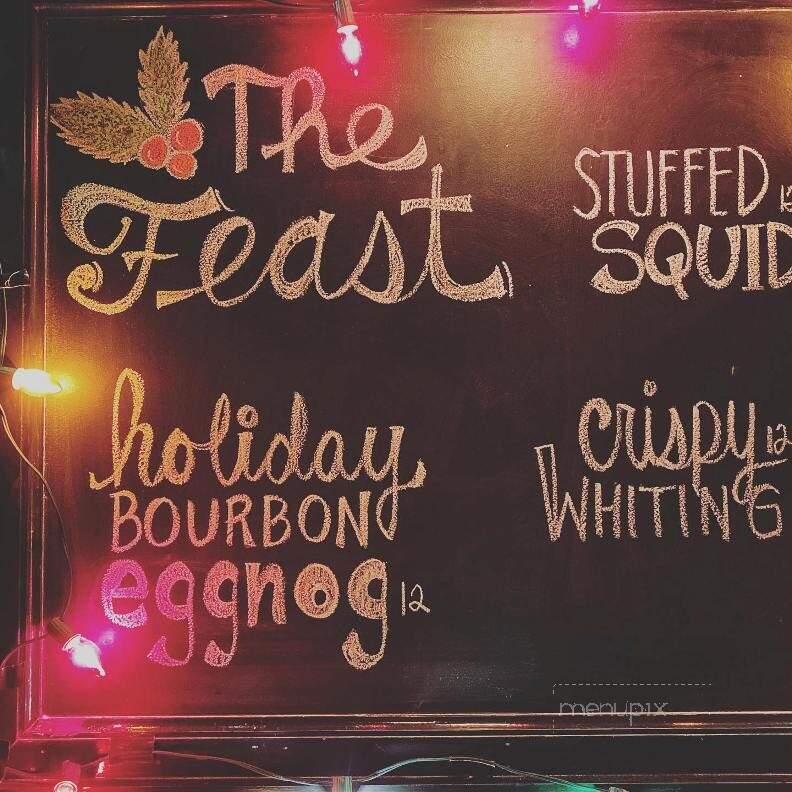 The
Feast
STUFFED
SQUID
holiday
BOURBON
eggnog 12
crispy 12
WHITING
menupix